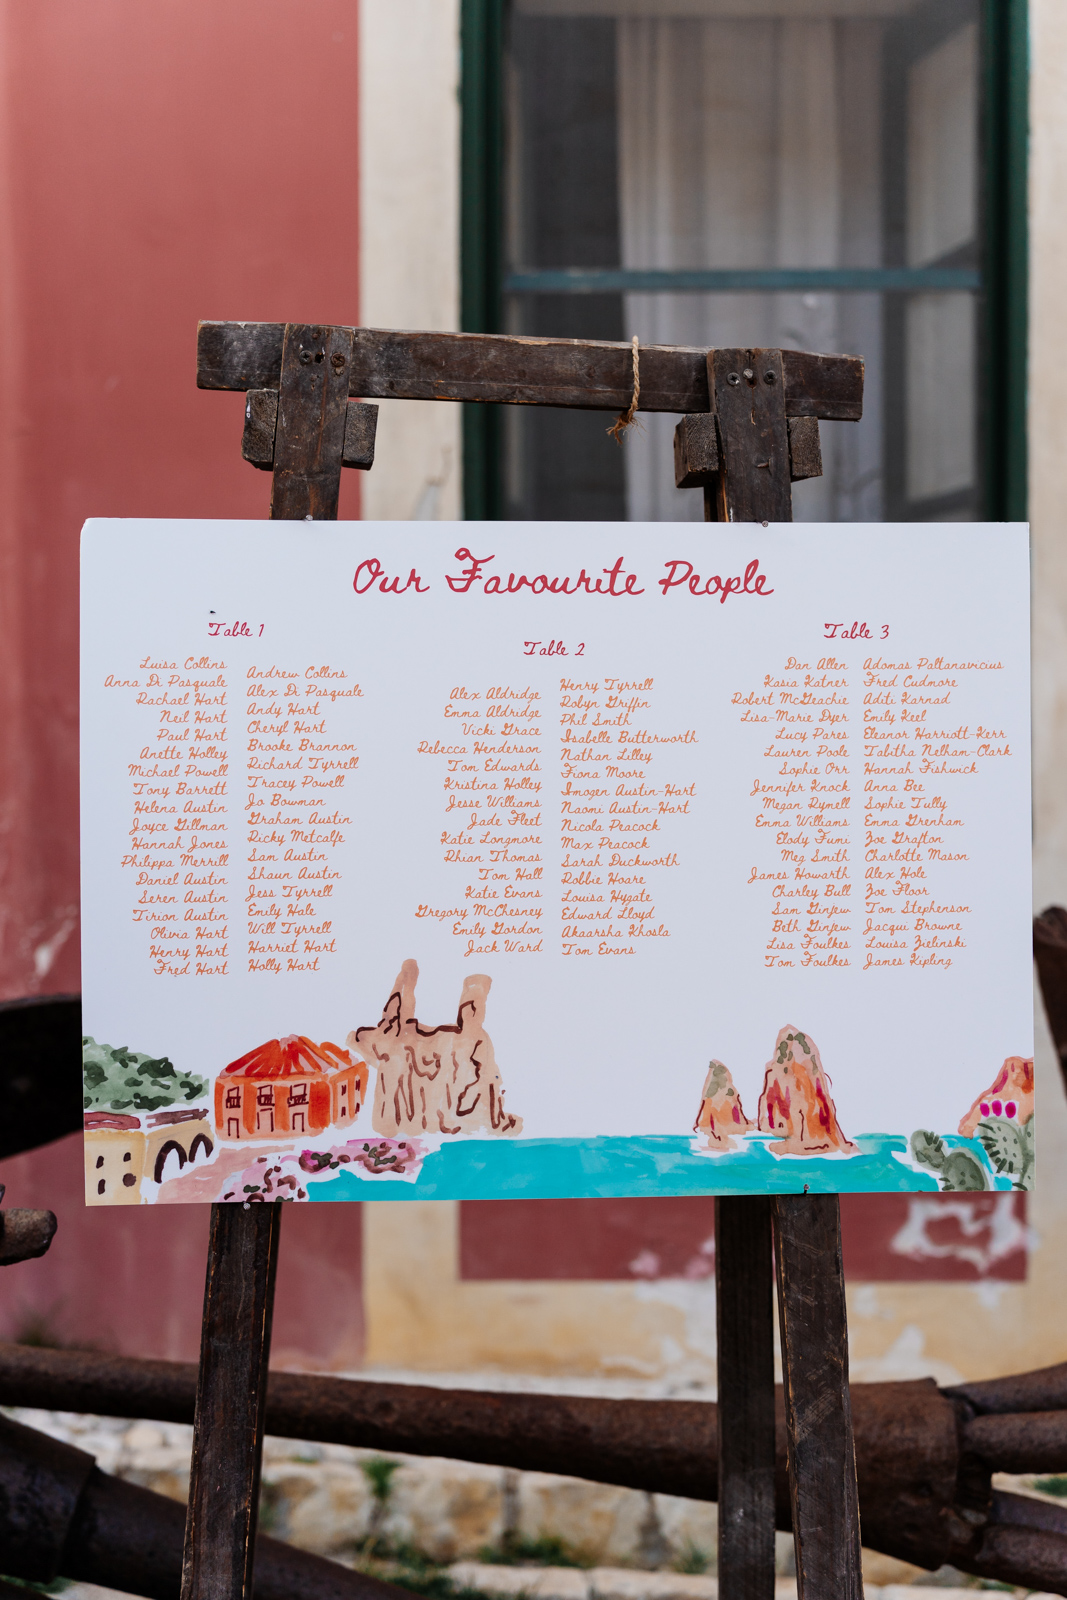 Our Favourite People
Table 1
Luisa Collins
Anna Di Pasquale
Rachael Hart
Neil Hart
Paul Hart
Anette Holley
Michael Powell
Tony Barrett
Helena Austin
Joyce Gillman
Hannah Jones
Philippa Merrill
Daniel Austin
Seren Austin
Tirion Austin
Olivia Hart
Henry Hart
Fred Hart
Andrew Collins
Alex Di Pasquale
Andy Hart
Cheryl Hart
Brooke Brannon
Richard Tyrrell
Tracey Powell
Jo Bowman
Graham Austin
Ricky Metcalfe
Sam Austin
Shaun Austin
Jess Tyrrell
Emily Hale
Will Tyrrell
Harriet Hart
Holly Hart
Table 2
Alex Aldridge
Emma Aldridge
Vicki Grace
Rebecca Henderson
Tom Edwards
Kristina Holley
Jesse Williams
Jade Fleet
Katie Longmore
Rhian Thomas
Tom Hall
Katie Evans
Gregory McChesney
Emily Gordon
Jack Ward
Henry Tyrrell
Robyn Griffin
Phil Smith
Isabelle Butterworth
Nathan Lilley
Fiona Moore
Imogen Austin-Hart
Naomi Austin-Hart
Nicola Peacock
Max Peacock
Sarah Duckworth
Robbie Hoare
Louisa Hygate
Edward Lloyd
Akaarsha Khosla
Tom Evans
Table 3
Dan Allen
Kasia Katner
Robert McGeachie
Lisa-Marie Dyer
Lucy Pares
Lauren Poole
Sophie Orr
Jennifer Knock
Megan Rymell
Emma Williams
Elody Fumi
Meg Smith
James Howarth
Charley Bull
Sam Ginjew
Beth Ginjew
Lisa Foulkes
Tom Foulkes
Adomas Paltanavicius
Fred Cudmore
Aditi Karnad
Emily Keel
Eleanor Harriott-Kerr
Tabitha Nelham-Clark
Hannah Fishwick
Anna Bee
Sophie Tully
Emma Grenham
Zoe Grafton
Charlotte Mason
Alex Hole
Zoe Floor
Tom Stephenson
Jacqui Browne
Louisa Zielinski
James Kipling